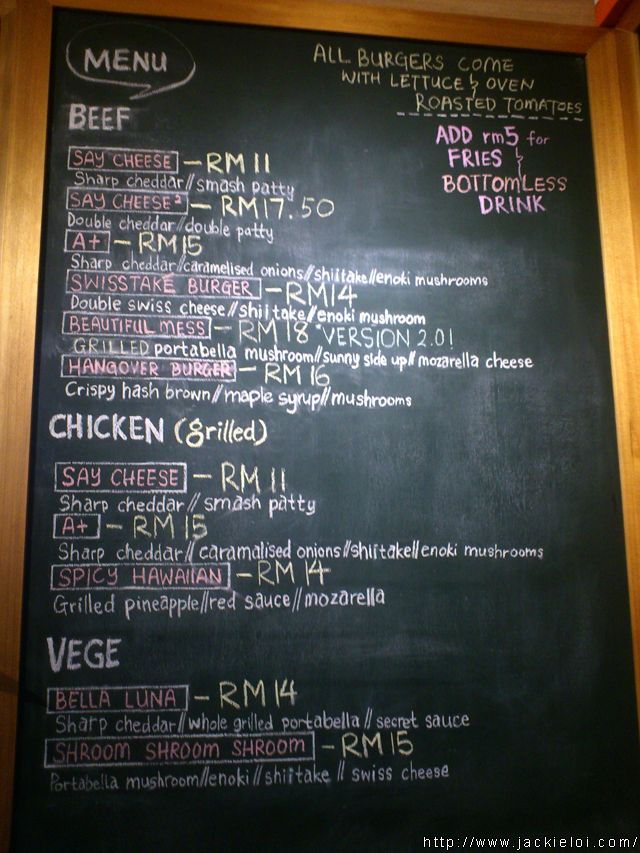 MENU
ALL BURGERS COME
WITH LETTUCE & OVEN
ROASTED TOMATOES
ADD rm5 for
FRIES &
BOTTOMLESS
DRINK
BEEF
SAY CHEESE - RM 11
Sharp cheddar // smash patty
SAY CHEESE² - RM 17.50
Double cheddar // double patty
A+ - RM 15
Sharp cheddar // caramelised onions // shiitake // enoki mushrooms
SWISSTAKE BURGER - RM14
Double swiss cheese // shiitake // enoki mushroom
BEAUTIFUL MESS - RM 18 *VERSION 2.0!
GRILLED portabella mushroom // sunny side up // mozarella cheese
HANGOVER BURGER - RM 16
Crispy hash brown // maple syrup // mushrooms
CHICKEN (grilled)
SAY CHEESE - RM 11
Sharp cheddar // smash patty
A+ - RM 15
Sharp cheddar // caramalised onions // shiitake // enoki mushrooms
SPICY HAWAIIAN - RM 14
Grilled pineapple // red sauce // mozarella
VEGE
BELLA LUNA - RM 14
Sharp cheddar // whole grilled portabella // secret sauce
SHROOM SHROOM SHROOM - RM 15
Portabella mushroom // enoki // shiitake // swiss cheese
http://www.jackieloi.com/